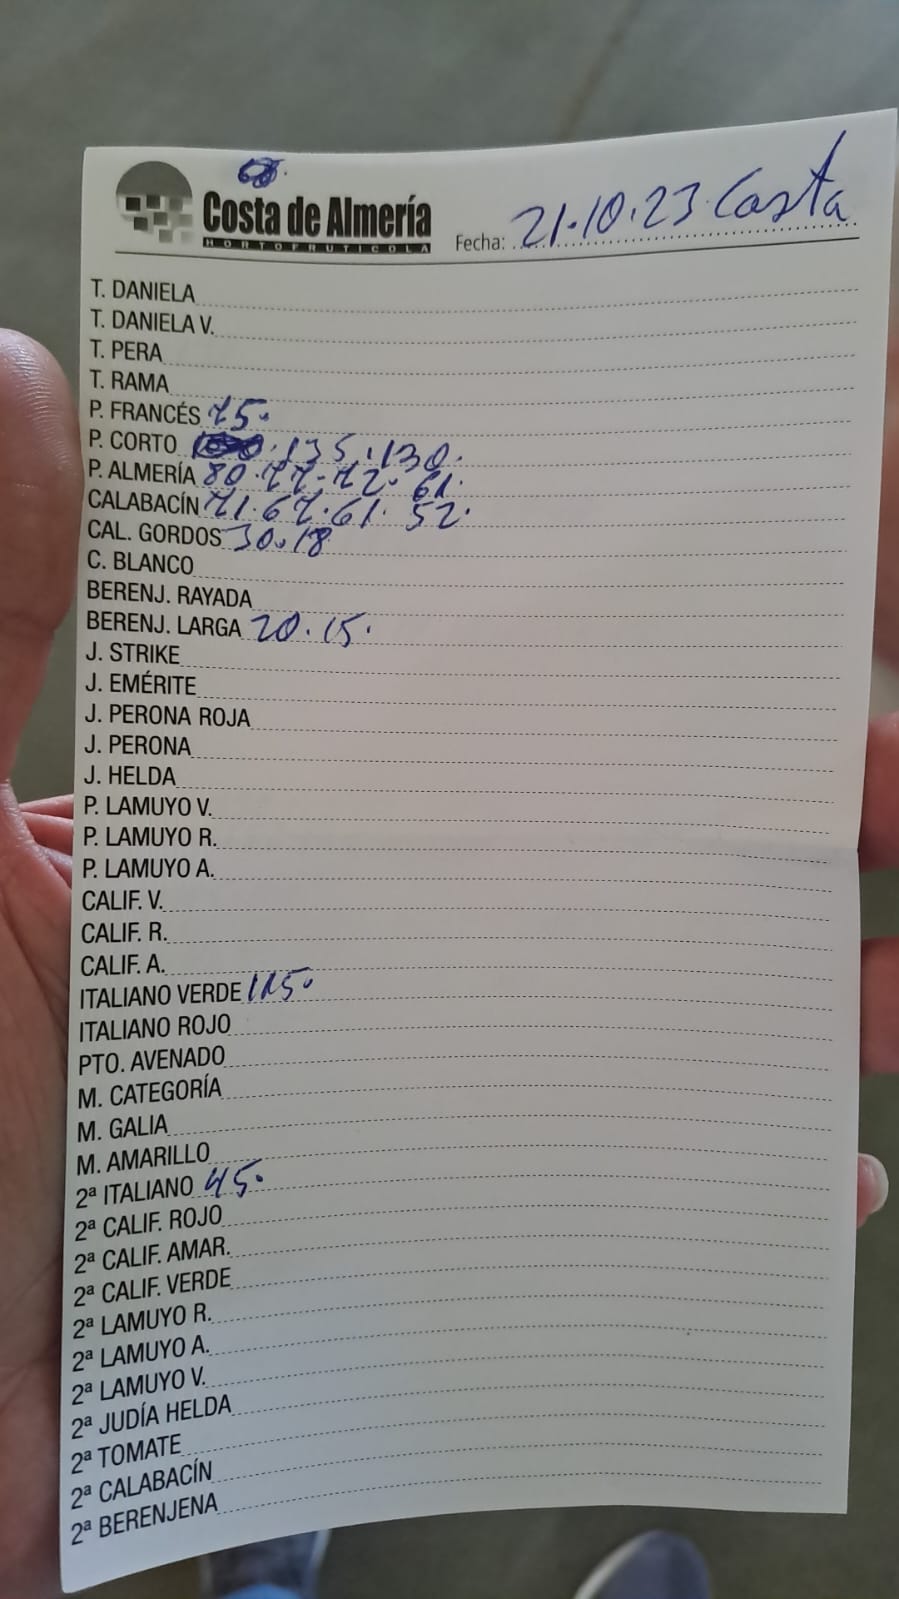 Costa de Almería
HORTOFRUTICOLA
Fecha: 21.10.23 Costa
T. DANIELA
T. DANIELA V.
T. PERA
T. RAMA
P. FRANCÉS 75.
P. CORTO 135.130.
P. ALMERÍA 80.77.72.61.
CALABACÍN 71.67.61.52.
CAL. GORDOS 30.18
C. BLANCO
BERENJ. RAYADA
BERENJ. LARGA 20.15.
J. STRIKE
J. EMÉRITE
J. PERONA ROJA
J. PERONA
J. HELDA
P. LAMUYO V.
P. LAMUYO R.
P. LAMUYO A.
CALIF. V.
CALIF. R.
CALIF. A.
ITALIANO VERDE
ITALIANO ROJO
PTO. AVENADO
M. CATEGORÍA
M. GALIA
M. AMARILLO
2ª ITALIANO 45.
2ª CALIF. ROJO
2ª CALIF. AMAR.
2ª CALIF. VERDE
2ª LAMUYO R.
2ª LAMUYO A.
2ª LAMUYO V.
2ª JUDÍA HELDA
2ª TOMATE
2ª CALABACÍN
2ª BERENJENA